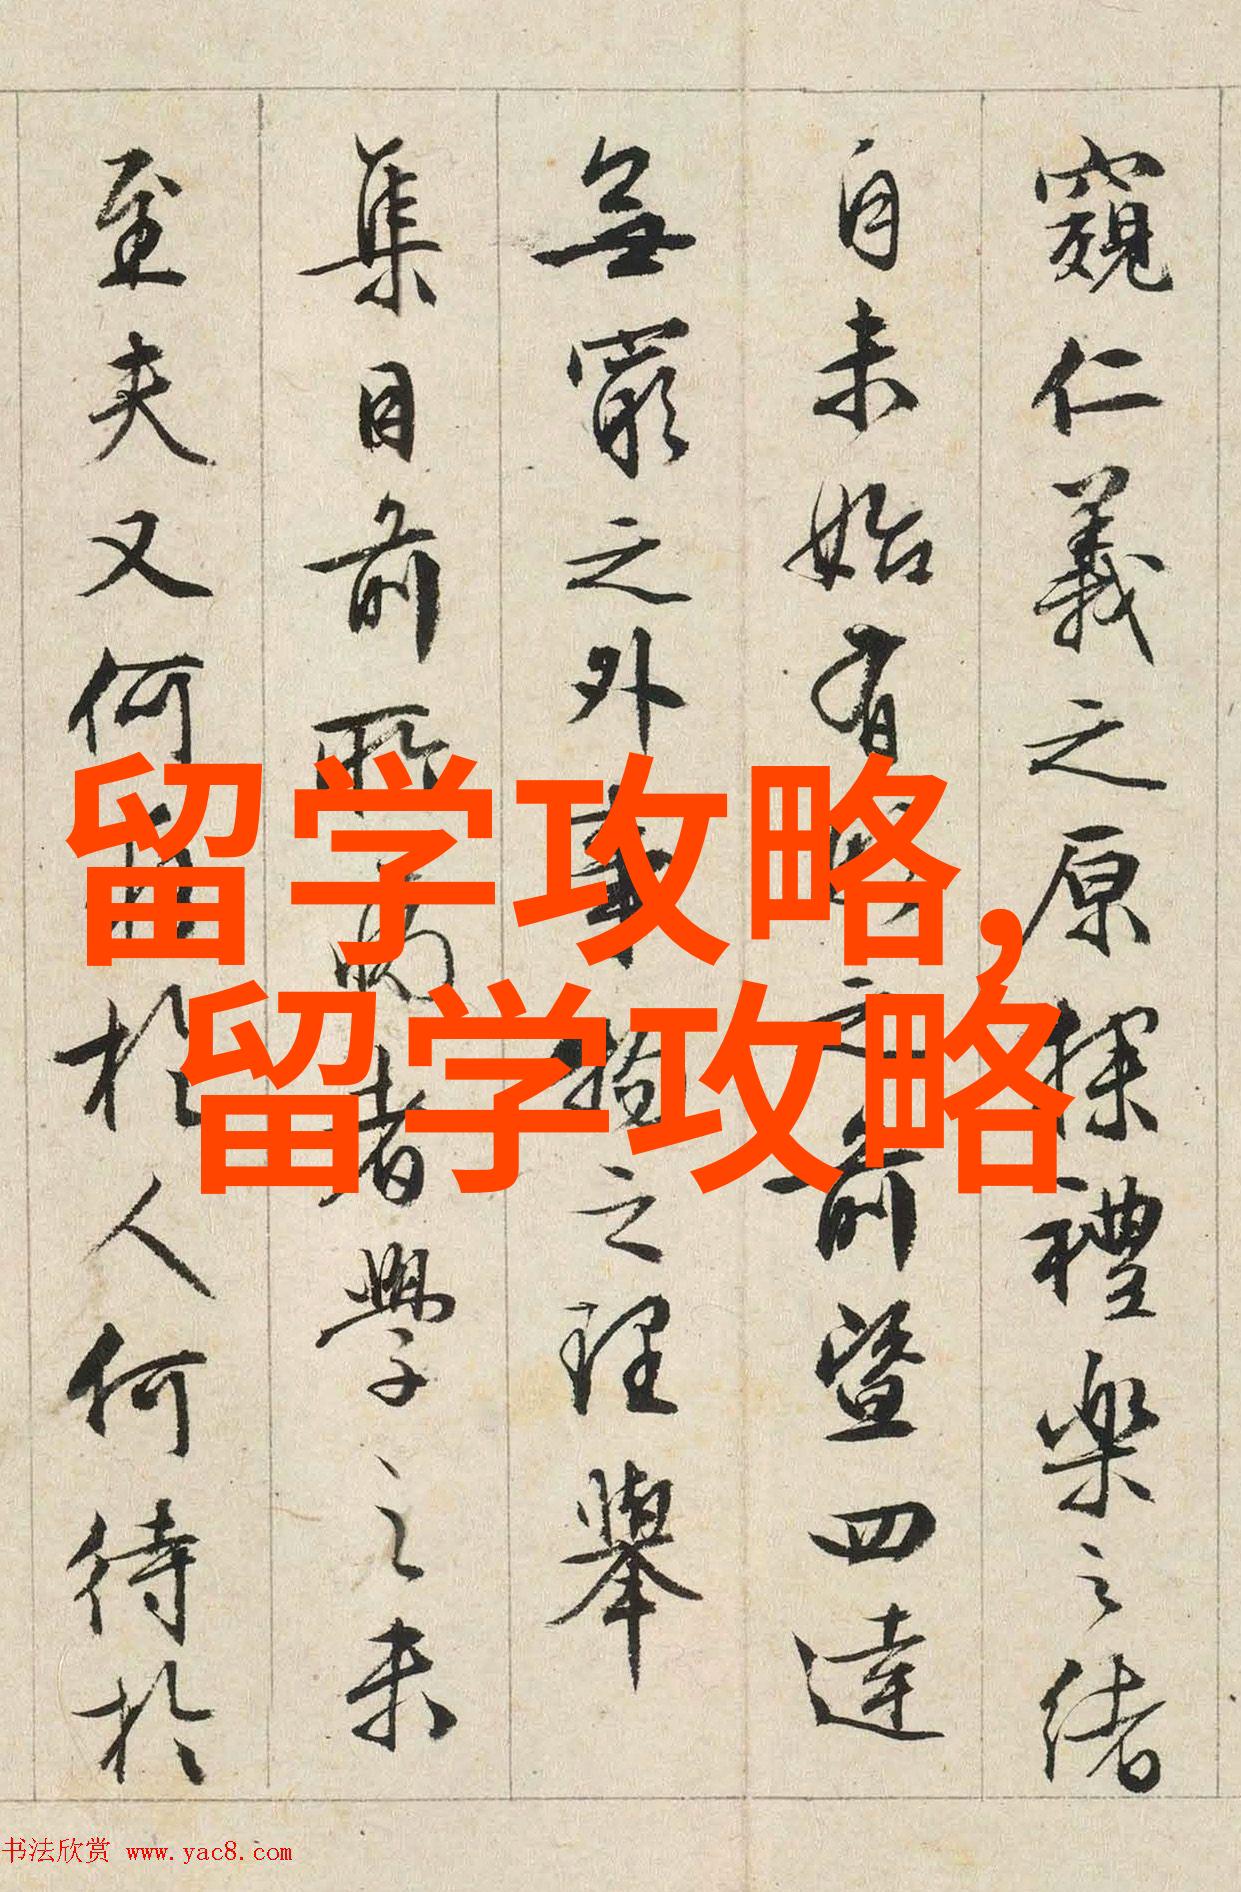 窺仁義之原探禮樂之緒
自未始有之前暨四達
無窮之外事物之理舉
集目前所者學之未
至夫又何於人何待於
留学攻略,
留学攻略
书法欣赏 www.yac8.com